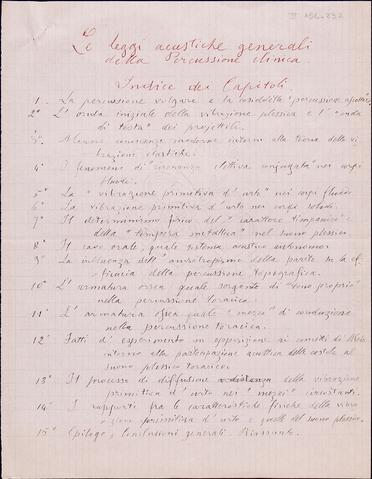 II 196-237
Le leggi acustiche generali
della Percussione clinica.
Indice dei Capitoli.
1° La percussione volgare e la cosiddetta "percussione
2° L'onda iniziale della vibrazione plessica e l' "onda
di testa" dei projettili.
3° Alcune conoscenze moderne intorno alla teoria delle vi
brazioni elastiche.
4° I fenomeni di "risonanza elettiva conjugata" nei corpi
fluidi.
5° La "vibrazione primitiva d'urto" nei corpi fluidi
6° La vibrazione primitiva d'urto nei corpi solidi
7° Il determinismo fisico del "carattere timpanico" e
della "tempera metallica" nel suono plessico
8° Il cavo orale, quale sistema acustico autonomo.
9° La influenza dell' anisotropismo della parete su la ef
ficacia della percussione topografica.
10° L' armatura ossea quale sorgente di "suono proprio"
nella percussione toracica.
11° L' armatura ossea quale "mezzo" di conduzione
nella percussione toracica.
12° Fatti d'esperimento in opposizione ai concetti di
intorno alla partecipazione acustica delle costole al
suono plessico toracico.
13° Il processo di diffusione a distanza della vibrazione
primitiva d'urto nei "mezzi" circostanti.
14° I rapporti fra le caratteristiche fisiche della vibra
zione primitiva d'urto e quelle del suono plessico.
15° Epilogo, Conclusioni generali. Riassunto.